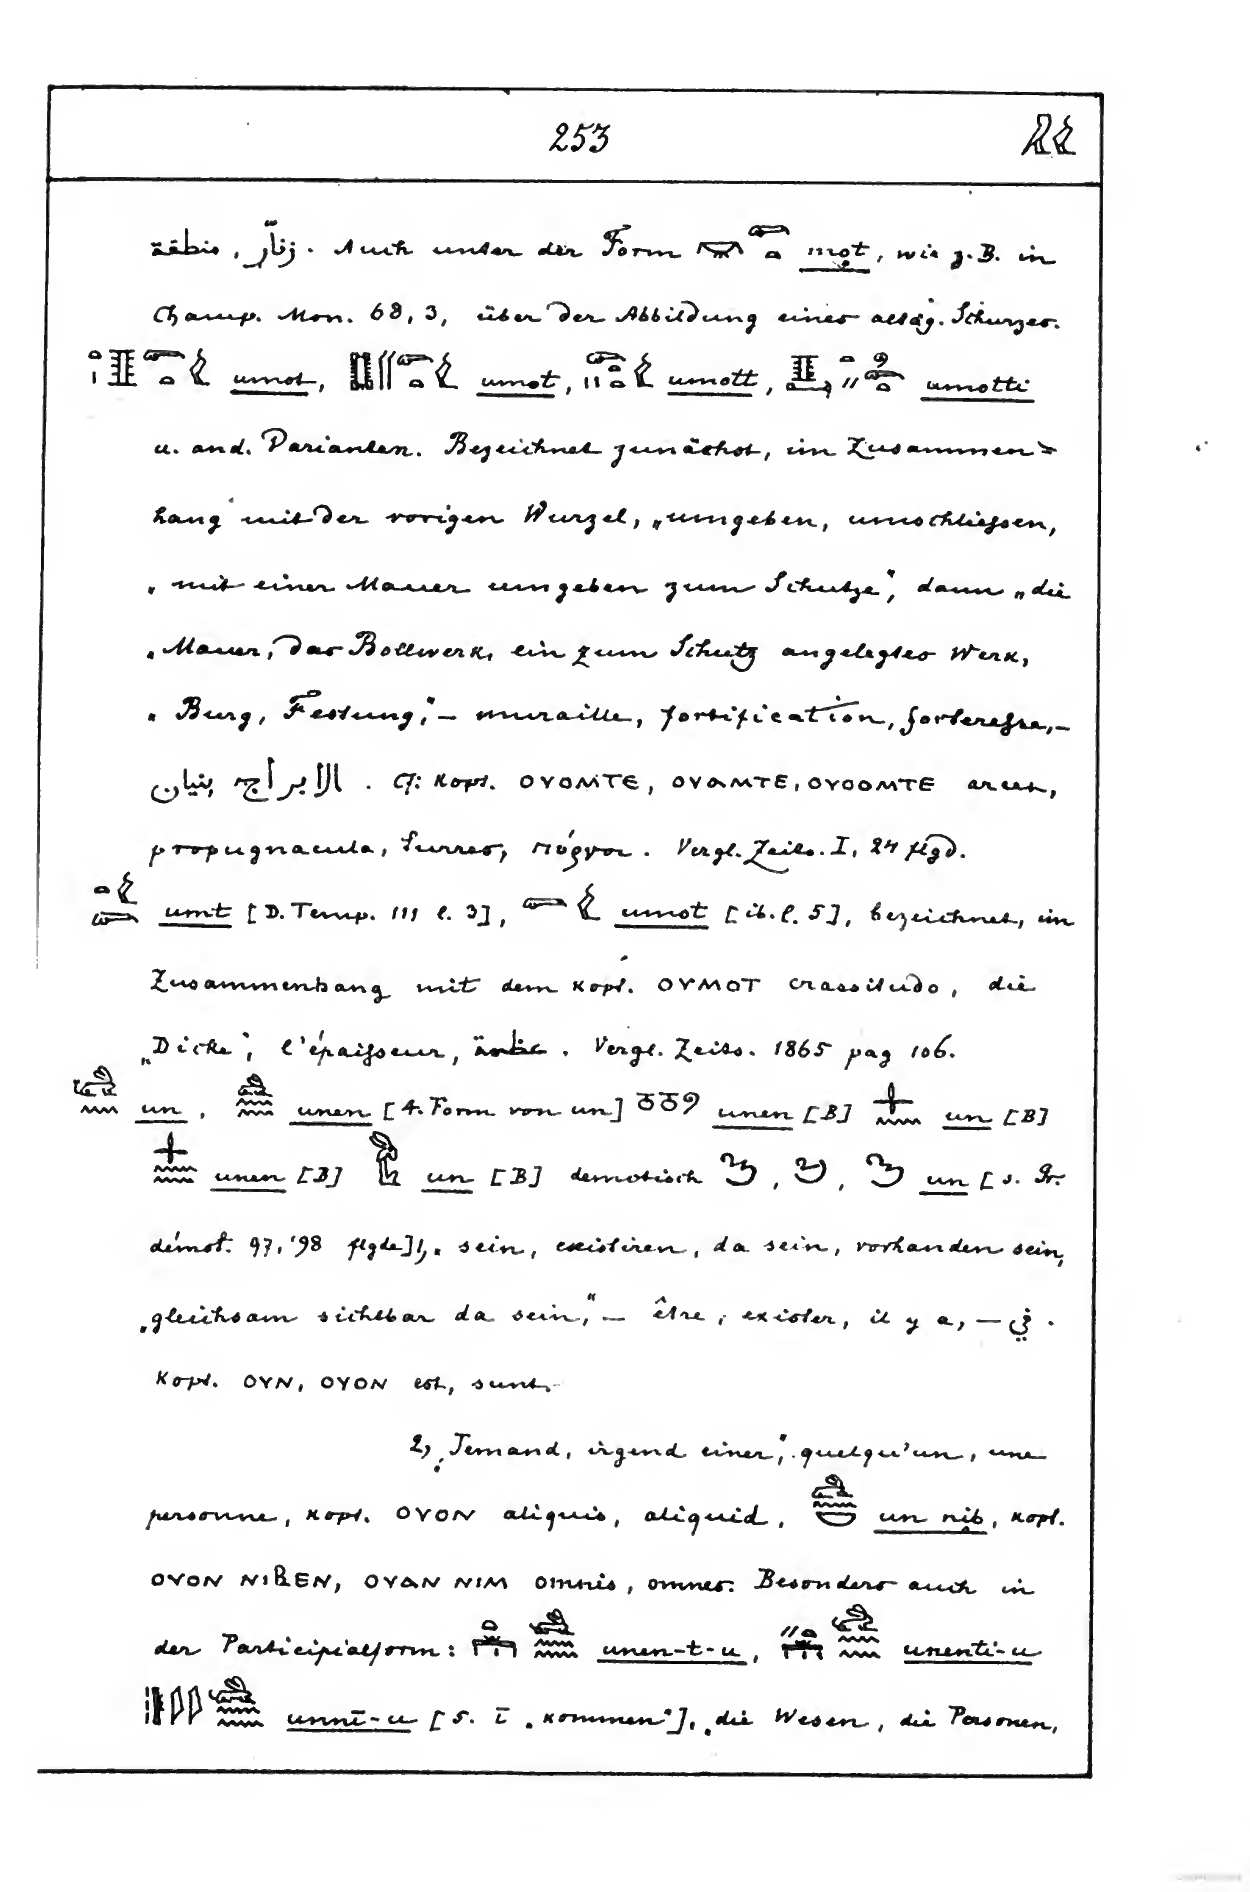 253
منطقة , زنّار . Auch unter der Form mot, wie z. B. in
Champ. Mon. 68, 3, über der Abbildung eines altäg. Schurzes.
umot, umot, umott, umotti
u. and. Varianten. Bezeichnet zunächst, im Zusammen-
hang mit der vorigen Wurzel, „umgeben, umschliessen,
„mit einer Mauer umgeben zum Schutze“, dann „die
„Mauer, das Bollwerk, ein zum Schutz angelegtes Werk,
„Burg, Festung,“ — muraille, fortification, forteresse, —
الابراج بنيان . Cf: Kopt. ⲞⲨⲞⲘⲦⲈ, ⲞⲨⲀⲘⲦⲈ, ⲞⲨⲞⲞⲘⲦⲈ arces,
propugnacula, turres, πύργοι. Vergl. Zeits. I, 24 flgd.
umt [D. Temp. III l. 3], umot [ib. l. 5], bezeichnet, im
Zusammenhang mit dem Kopt. ⲞⲨⲘⲞⲦ crassitudo, die
„Dicke“, l'épaisseur, . Vergl. Zeits. 1865 pag 106.
un, unen [4. Form von un] unen [B] un [B]
unen [B] un [B] demotisch , , un [s. Gr.
démot. 97, 98 flgde] 1, „sein, existiren, da sein, vorhanden sein,
„gleichsam sichtbar da sein,“ — être, exister, il y a, — في .
Kopt. ⲞⲨⲚ, ⲞⲨⲞⲚ est, sunt.
2, „Jemand, irgend einer“, quelqu'un, une
personne, Kopt. ⲞⲨⲞⲚ aliquis, aliquid, un nib, Kopt.
ⲞⲨⲞⲚ ⲚⲒⲂⲈⲚ, ⲞⲨⲀⲚ ⲚⲒⲘ omnis, omnes. Besonders auch in
der Participialform: unen-t-u, unenti-u
unnī-u [s. ī „kommen“], „die Wesen, die Personen,